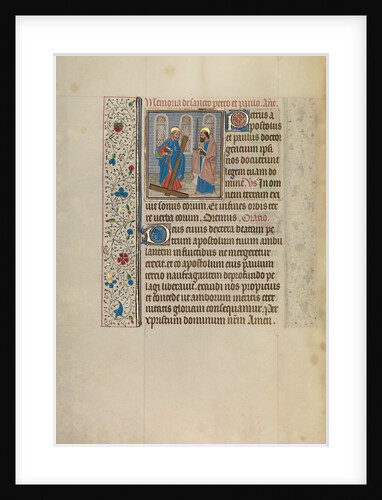 Memoria de sancto petro et paulo. Añe.
Petrus a
postolus
et paulus docto
gencium ipsi
nos docuerunt
legem tuam do
mine. Vs In om
nem terram exi
uit sonus eorum. Et in fines orbis ter
re uerba eorum. Oremus. Oratio.
Deus cuius dextera beatum pe
trum apostolum cuum ambu
lantem in fluctibus ne mergeretur
erexit. et co apostolum eius paulum
tercio naufragantem de profundo pe
lagi liberauit. exaudi nos propicius
et concede ut amborum meritis eter
nitatis gloriam consequamur. Per
xpristum dominum nr̄m Amen.